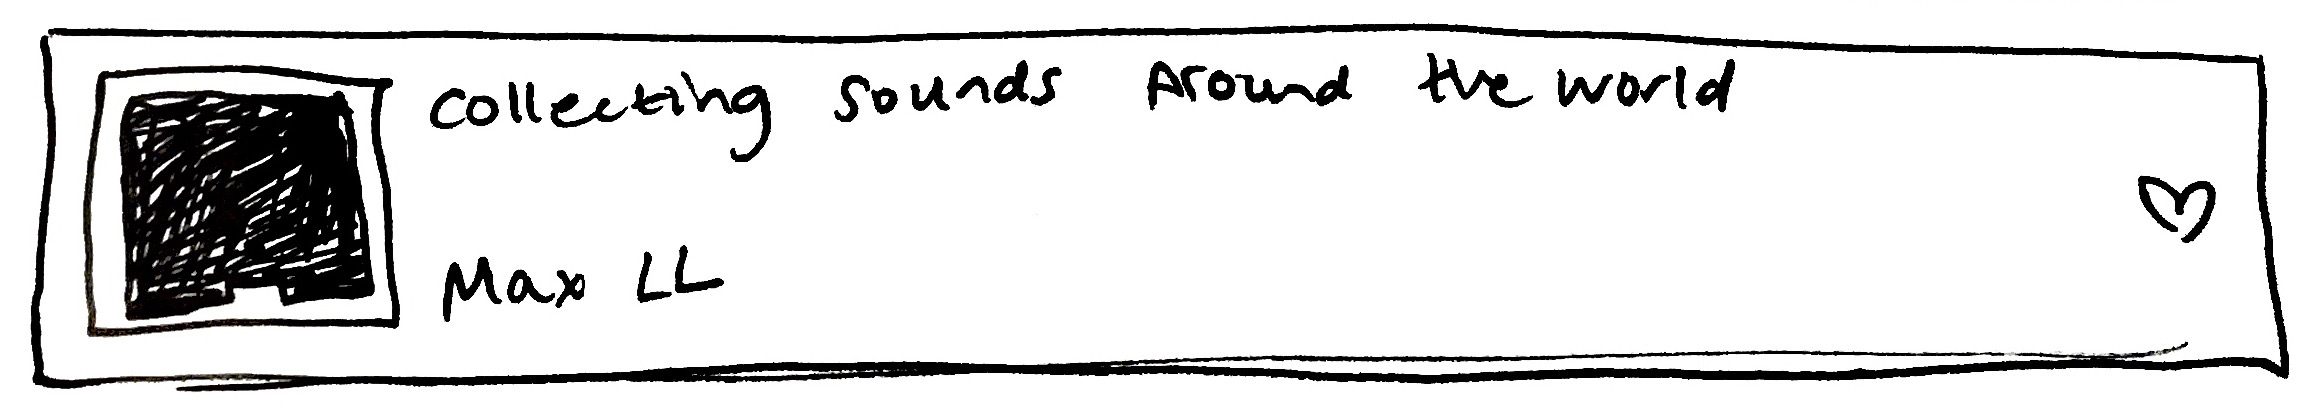 Collecting sounds Around the world
Max LL